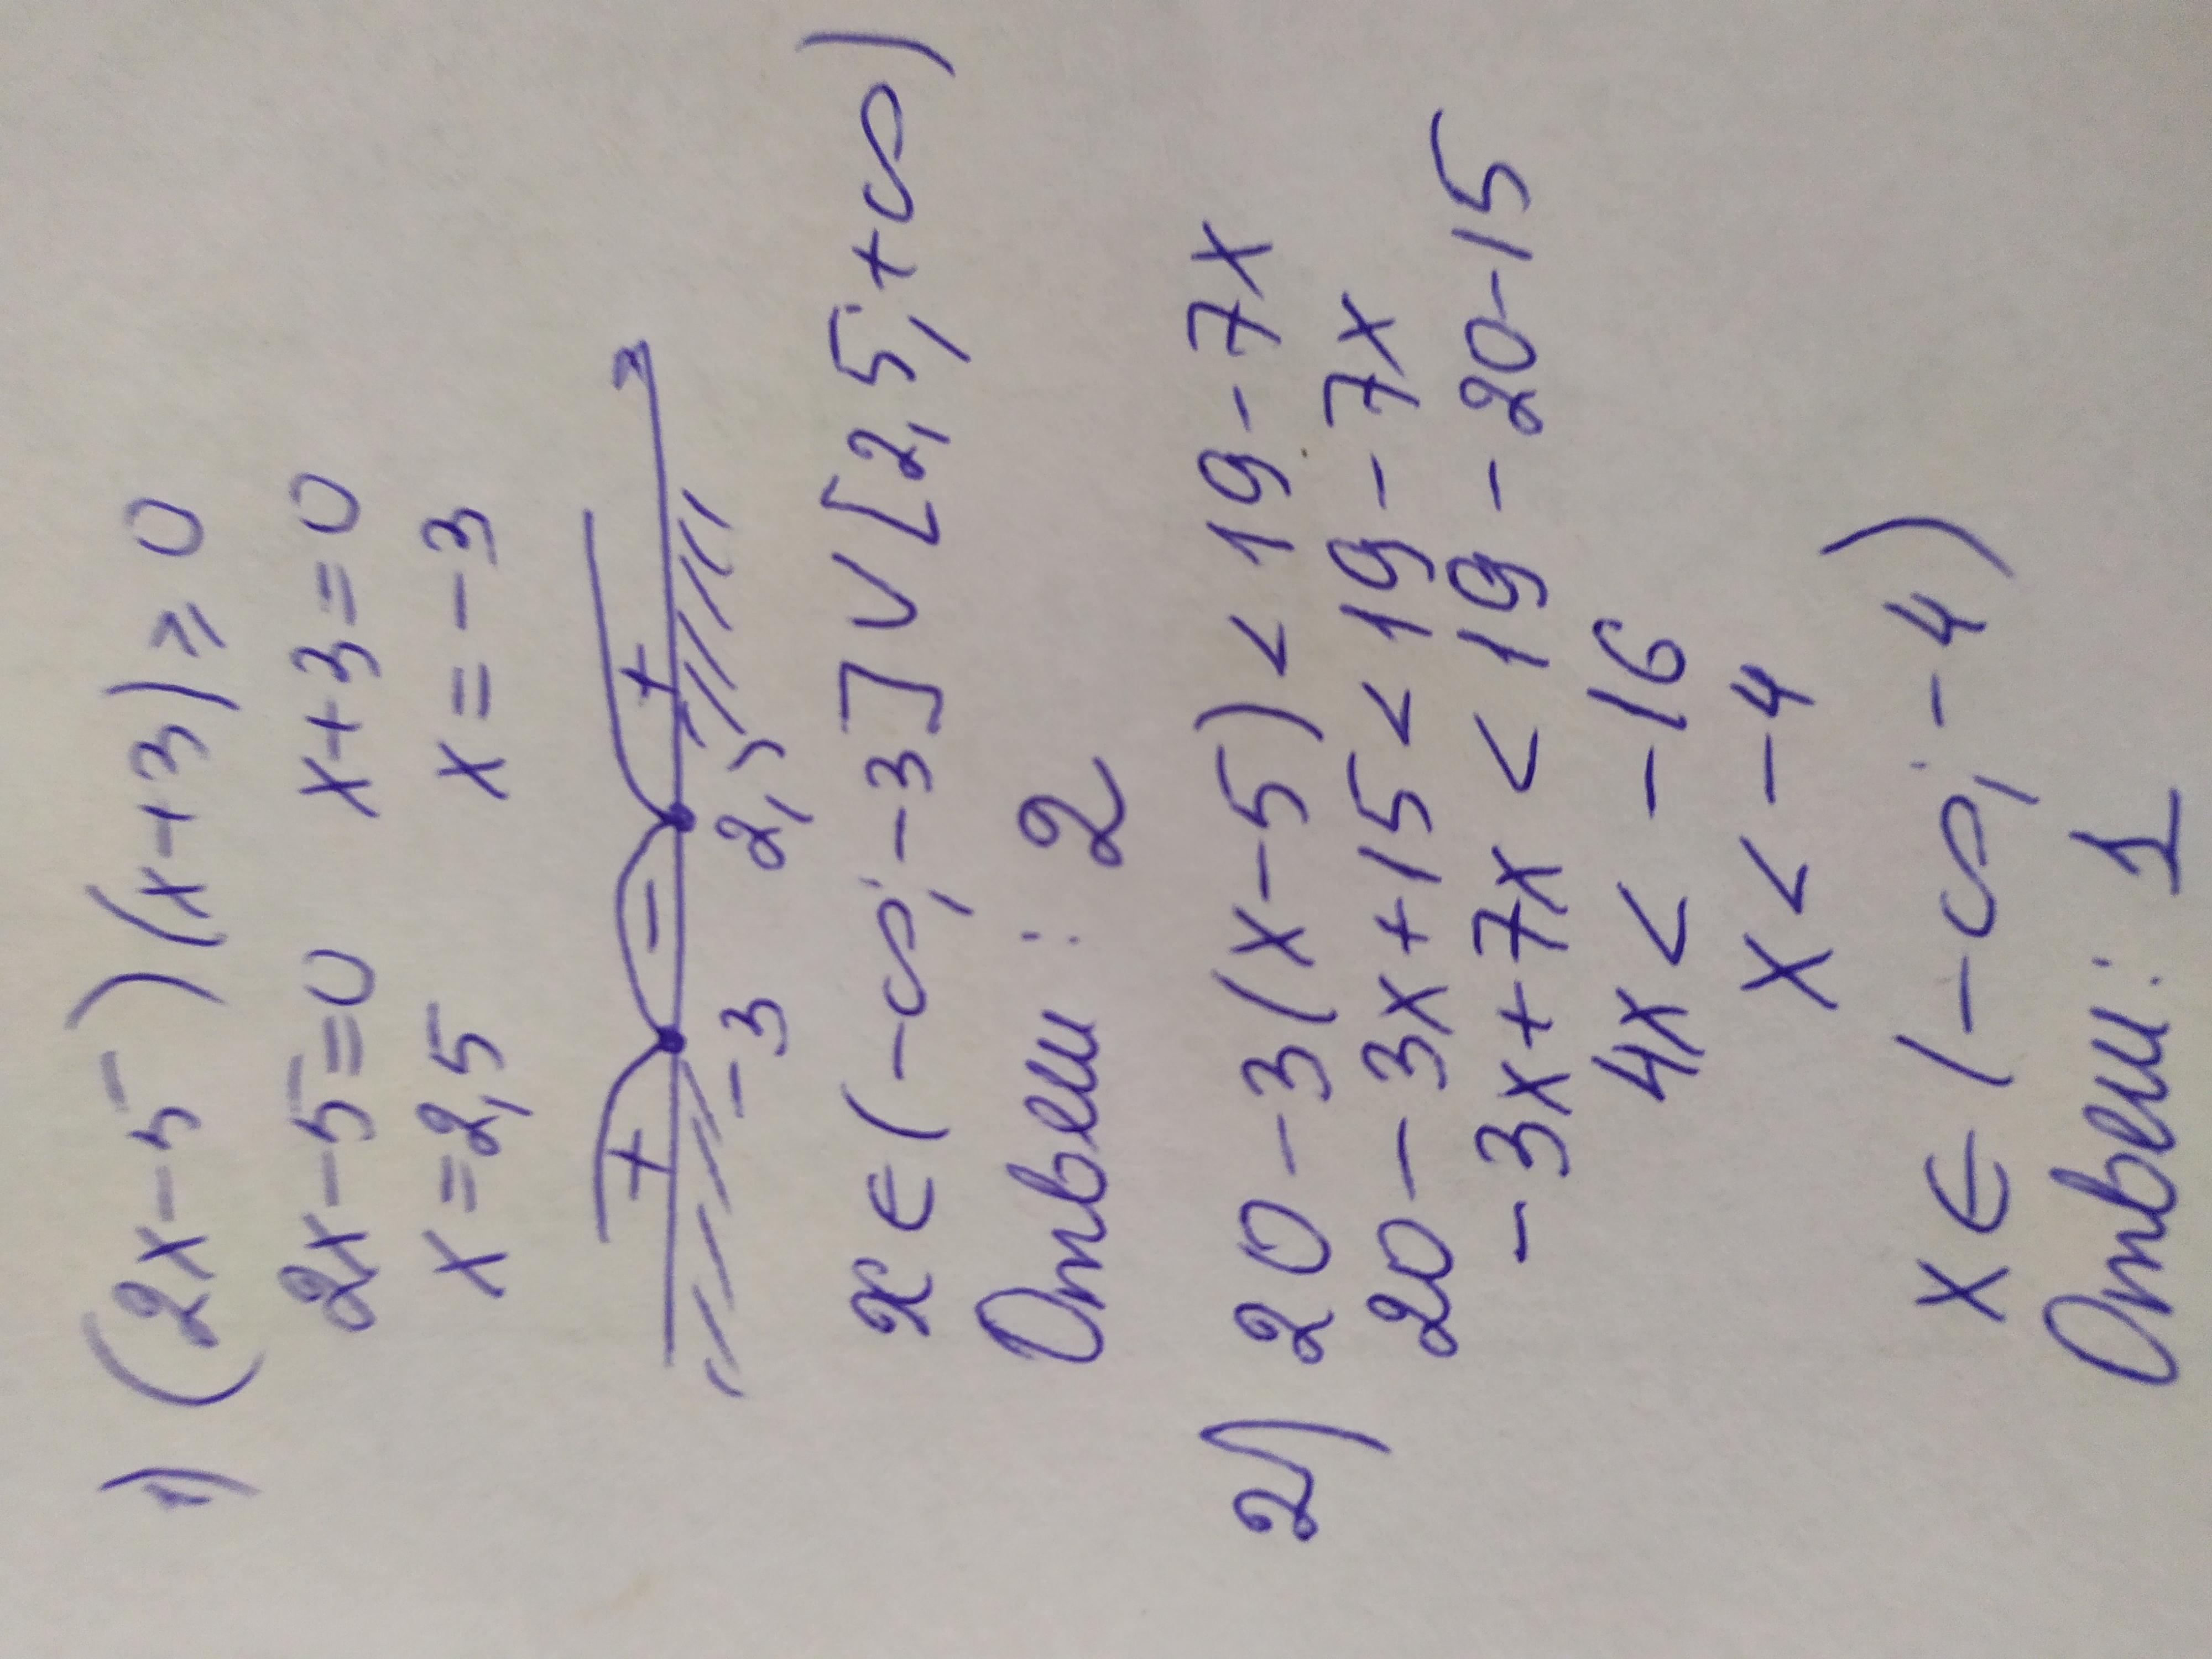 1) (2x-5)(x+3)⩾0
2x-5=0 x+3=0
x=2,5 x=-3
+ - +
-3 2,5
x∈(-∞;-3]∪[2,5;+∞)
Ответ: 2
2) 20-3(x-5)<19-7x
20-3x+15<19-7x
-3x+7x<19-20-15
4x<-16
x<-4
x∈(-∞;-4)
Ответ: 1